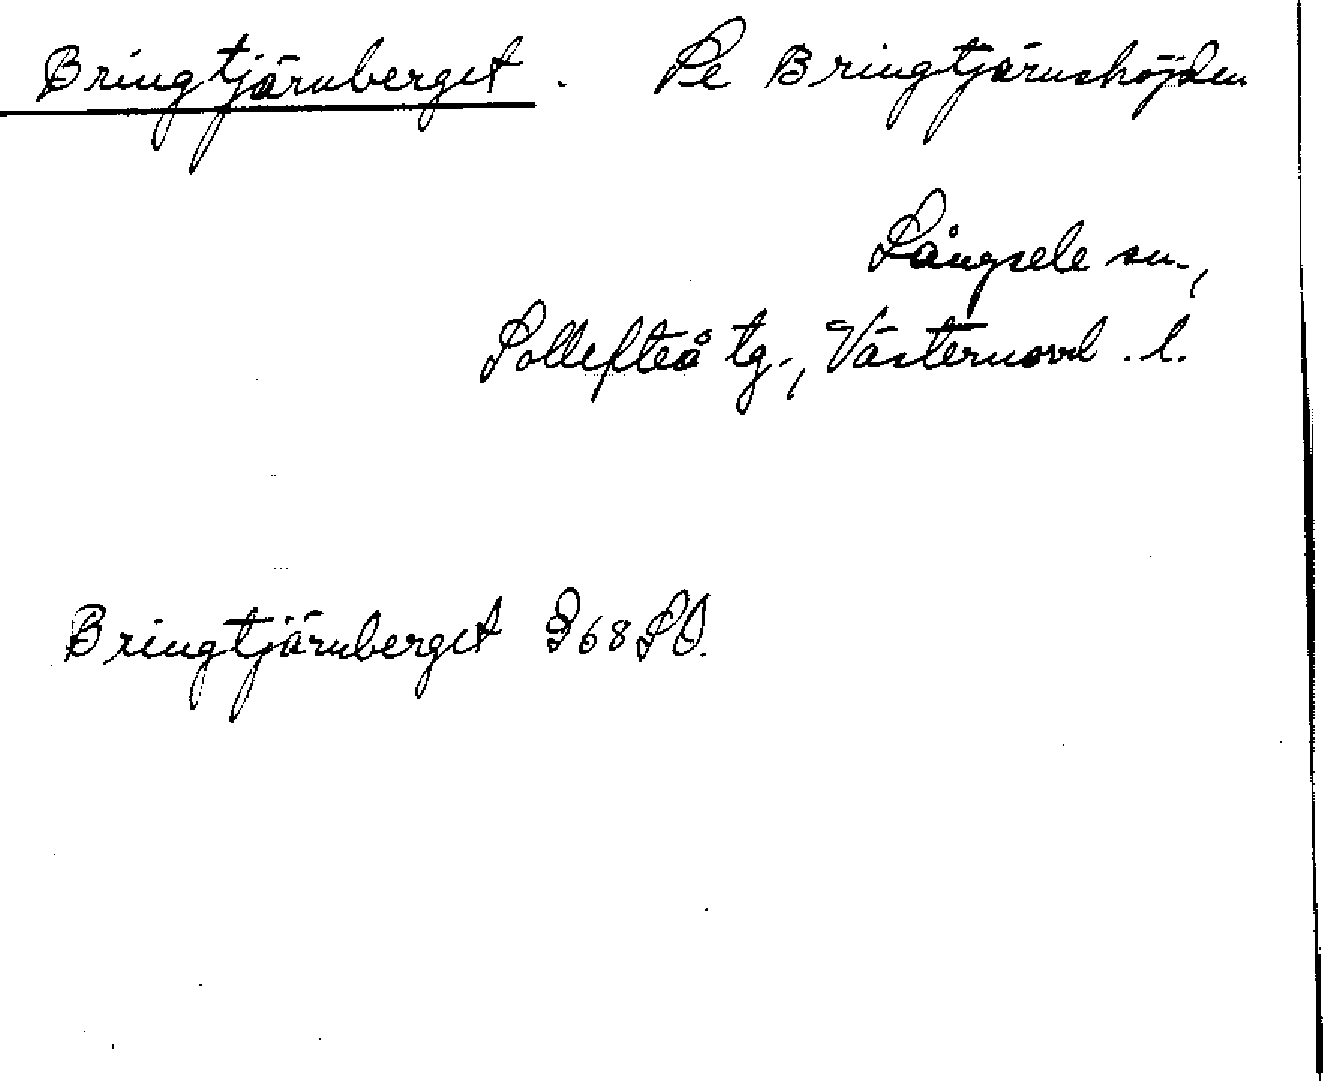 Bringtjärnberget. Se Bringtjärnshöjden
Långsele sn.,
Sollefteå tg., Västernorrl. l.
Bringtjärnberget G68SO.